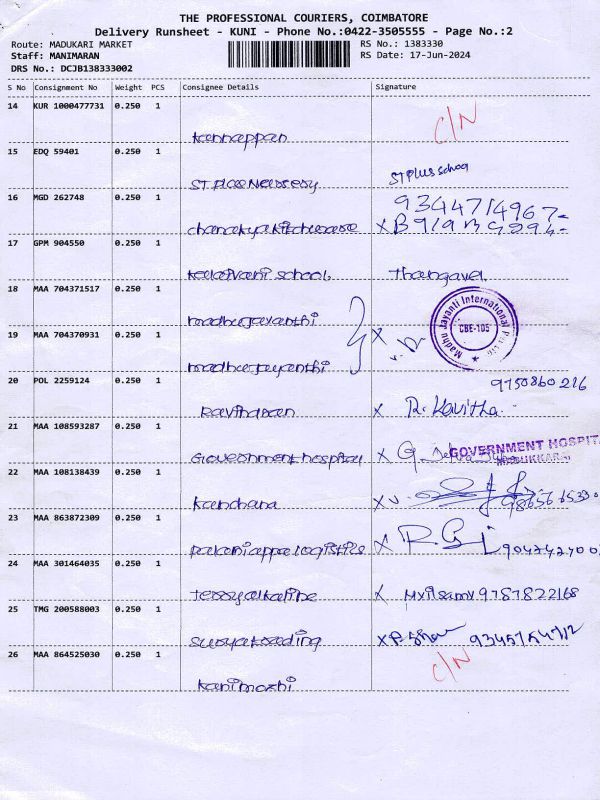 THE PROFESSIONAL COURIERS, COIMBATORE
Delivery Runsheet - KUNI - Phone No.:0422-3505555 - Page No.:2
Route: MADUKARI MARKET RS No.: 1383330
Staff: MANIMARAN RS Date: 17-Jun-2024
DRS No.: DCJB138333002
S No Consignment No Weight PCS Consignee Details Signature
14 KUR 1000477731 0.250 1 C/N
Kannappan
15 EDQ 59401 0.250 1
ST Plus Nursery ST Plus School
16 MGD 262748 0.250 1 9344714967
chanakya X B
17 GPM 904550 0.250 1
Kalaivani school Thangavel
18 MAA 704371517 0.250 1
madhu jayanthi
19 MAA 704370931 0.250 1 X
Madhu Jayanti International Pvt Ltd
CBE-105
madhu jayanthi
20 POL 2259124 0.250 1 9750860216
Ravitharan X R. Kavitha
21 MAA 108593287 0.250 1
Government hospital X G. GOVERNMENT HOSPITA
MADUKKARAI
22 MAA 108138439 0.250 1
Kanchana X
23 MAA 863872309 0.250 1
Palaniappa logistics X
24 MAA 301464035 0.250 1
Jessy alkaline X Mylsamy 9787822168
25 TMG 200588003 0.250 1
Surya trading X
26 MAA 864525030 0.250 1 C/N
Kanimozhi